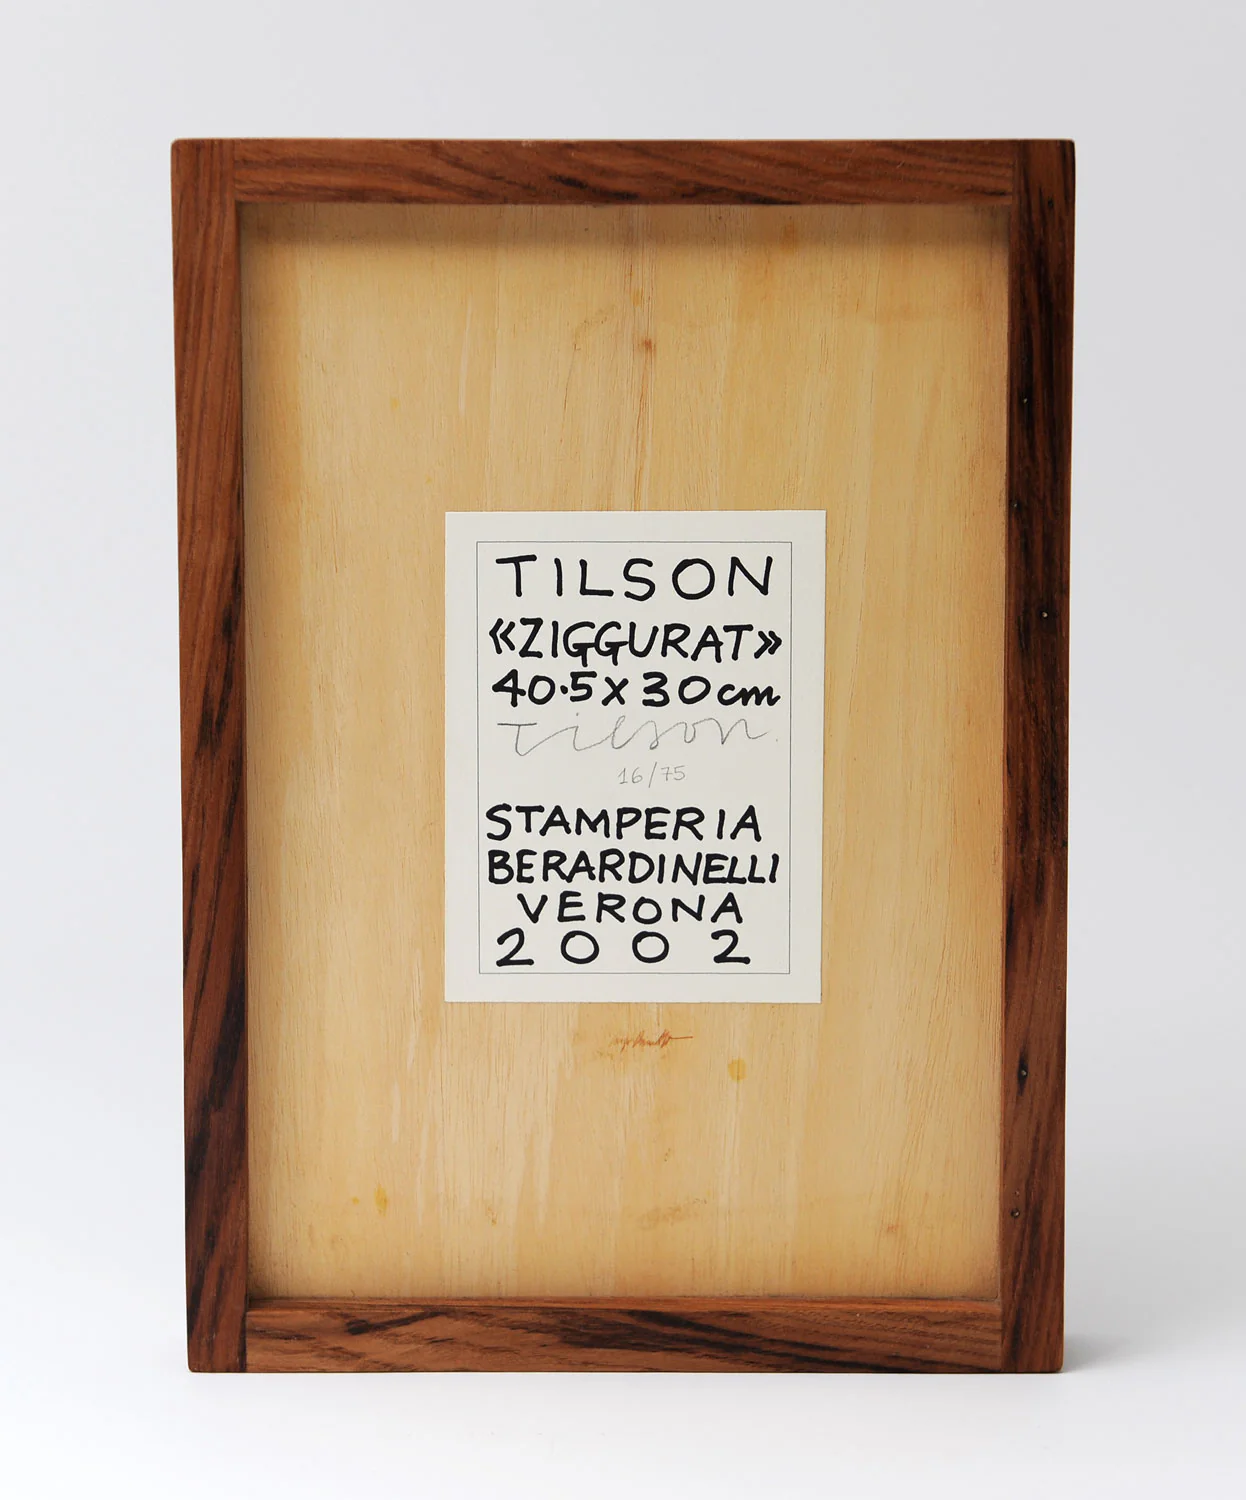 TILSON
«ZIGGURAT»
40·5 x 30 cm
Tilson
16/75
STAMPERIA
BERARDINELLI
VERONA
2002